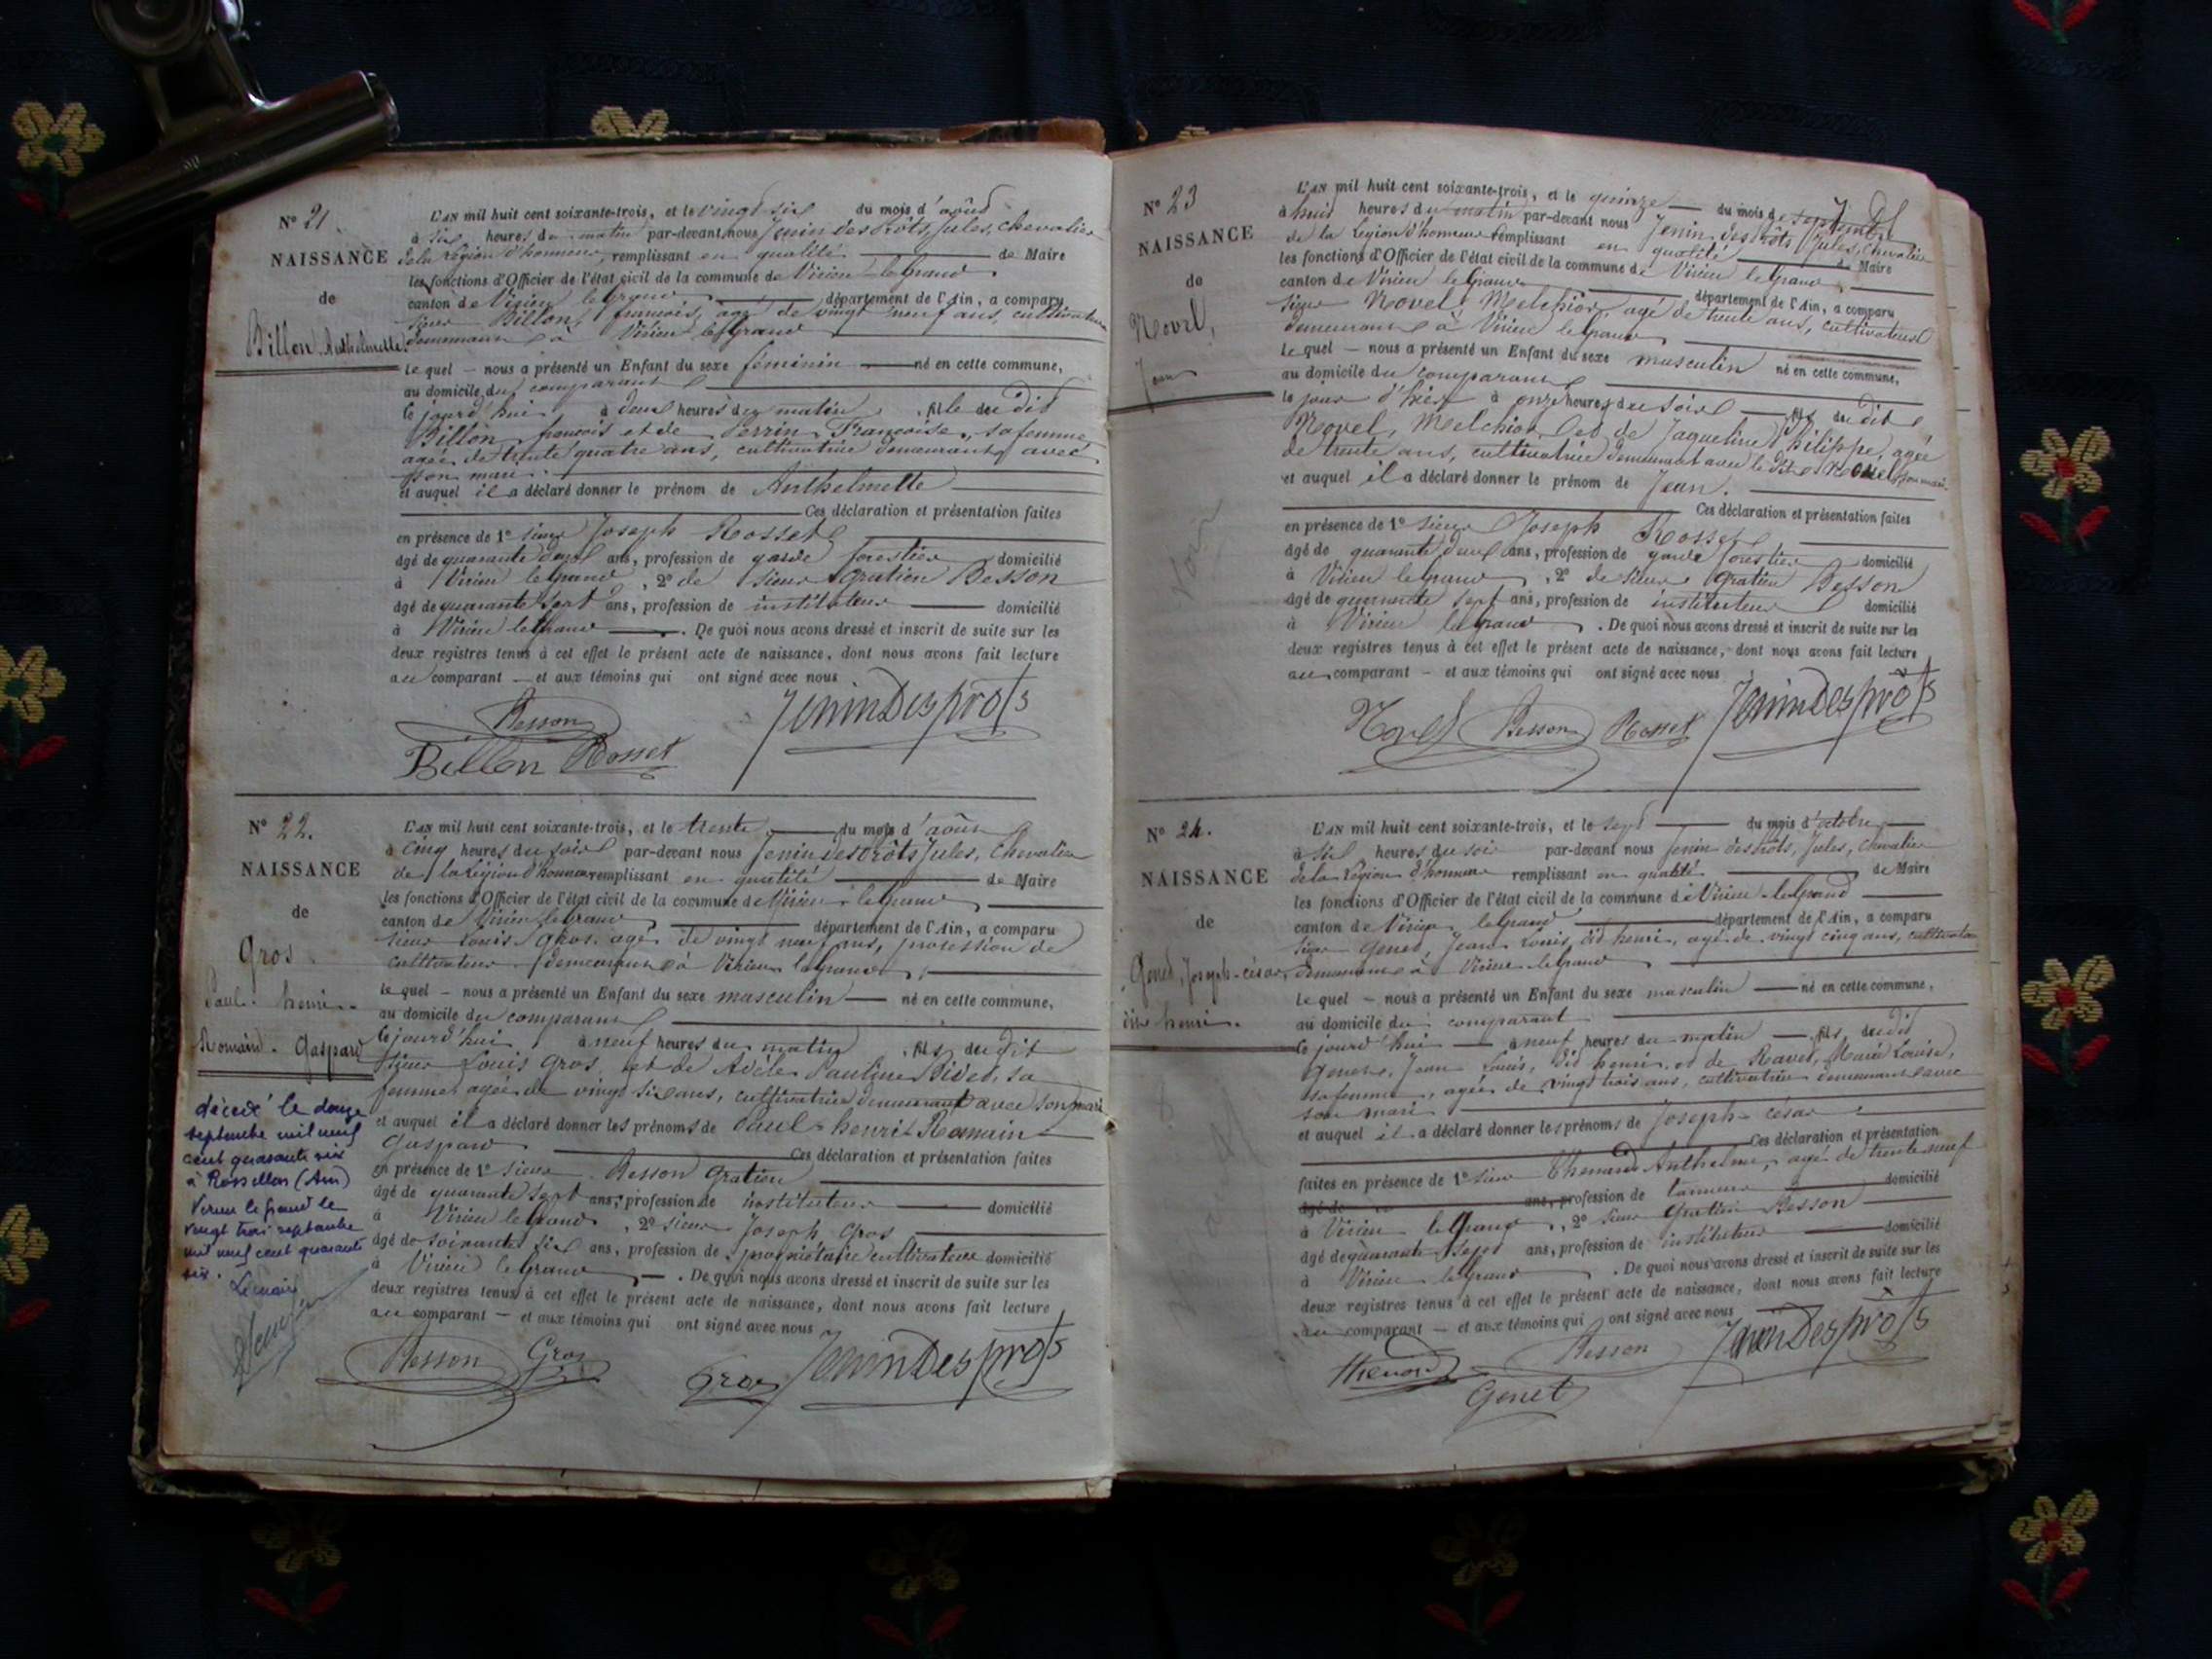 N° 21
NAISSANCE
de
Billon Anthelmette
L'AN mil huit cent soixante-trois, et le vingt six du mois d'août
à six heures du matin par-devant nous Jenin des prôts, Jules, chevalier
de la légion d'honneur, remplissant en qualité de Maire
les fonctions d'Officier de l'état civil de la commune de Virieu le grand
canton de Virieu le grand département de l'Ain, a comparu
sieur Billon, françois, agé de vingt neuf ans, cultivateur
demeurant à Virieu le grand
lequel nous a présenté un Enfant du sexe féminin né en cette commune,
au domicile du comparant
ce jourd'hui à deux heures du matin, fille du dit
Billon françois et de Perrin Françoise, sa femme
agée de trente quatre ans, cultivatrice demeurant avec
son mari
et auquel il a déclaré donner le prénom de Anthelmette
Ces déclaration et présentation faites
en présence de 1° sieur Joseph Rosset
âgé de quarante deux ans, profession de garde forestier domicilié
à Virieu le grand, 2° de sieur Gratien Besson
âgé de quarante sept ans, profession de instituteur domicilié
à Virieu le grand. De quoi nous avons dressé et inscrit de suite sur les
deux registres tenus à cet effet le présent acte de naissance, dont nous avons fait lecture
au comparant et aux témoins qui ont signé avec nous
Besson JeninDesprôts
Billon Rosset
N° 22.
NAISSANCE
de
Gros
Paul henri
Romain Gaspard
décédé le douze
septembre mil neuf
cent quarante six
à Rossillon (Ain)
Virieu le grand le
vingt trois septembre
mil neuf cent quarante
six.
Le maire
L'AN mil huit cent soixante-trois, et le trente du mois d'août
à cinq heures du soir par-devant nous Jenin des prôts Jules, chevalier
de la légion d'honneur remplissant en qualité de Maire
les fonctions d'Officier de l'état civil de la commune de Virieu le grand
canton de Virieu le grand département de l'Ain, a comparu
sieur Louis Gros, agé de vingt neuf ans, profession de
cultivateur demeurant à Virieu le grand
lequel nous a présenté un Enfant du sexe masculin né en cette commune,
au domicile du comparant
ce jourd'hui à neuf heures du matin, fils du dit
sieur Louis Gros et de Adèle Pauline Bidet, sa
femme agée de vingt six ans, cultivatrice demeurant avec son mari
et auquel il a déclaré donner les prénoms de Paul henri Romain
Gaspard Ces déclaration et présentation faites
en présence de 1° sieur Besson Gratien
âgé de quarante sept ans, profession de instituteur domicilié
à Virieu le grand, 2° sieur Joseph Gros
âgé de soixante six ans, profession de propriétaire cultivateur domicilié
à Virieu le grand. De quoi nous avons dressé et inscrit de suite sur les
deux registres tenus à cet effet le présent acte de naissance, dont nous avons fait lecture
au comparant et aux témoins qui ont signé avec nous
Besson Gros Gros JeninDesprôts
N° 23
NAISSANCE
de
Novel,
Jean
L'AN mil huit cent soixante-trois, et le quinze du mois de septembre
à huit heures du matin par-devant nous Jenin des prôts Jules, chevalier
de la légion d'honneur remplissant en qualité de Maire
les fonctions d'Officier de l'état civil de la commune de Virieu le grand
canton de Virieu le grand département de l'Ain, a comparu
sieur Novel Melchior, agé de trente ans, cultivateur
demeurant à Virieu le grand
lequel nous a présenté un Enfant du sexe masculin né en cette commune,
au domicile du comparant
le jour d'hier à onze heures du soir fils du dit
Novel, Melchior et de Jaqueline Philippe, agée
de trente ans, cultivatrice demeurant avec le dit Novel, son mari
et auquel il a déclaré donner le prénom de Jean.
Ces déclaration et présentation faites
en présence de 1° sieur Joseph Rosset
âgé de quarante deux ans, profession de garde forestier domicilié
à Virieu le grand, 2° de sieur Gratien Besson
âgé de quarante sept ans, profession de instituteur domicilié
à Virieu le grand. De quoi nous avons dressé et inscrit de suite sur les
deux registres tenus à cet effet le présent acte de naissance, dont nous avons fait lecture
au comparant et aux témoins qui ont signé avec nous
Novel Besson Rosset JeninDesprôts
N° 24.
NAISSANCE
de
Genet, Joseph-césar,
dit henri.
L'AN mil huit cent soixante-trois, et le sept du mois d'octobre
à six heures du soir par-devant nous Jenin des prôts, Jules, chevalier
de la légion d'honneur remplissant en qualité de Maire
les fonctions d'Officier de l'état civil de la commune de Virieu le grand
canton de Virieu le grand département de l'Ain, a comparu
sieur Genet, Jean Louis, dit henri, agé de vingt cinq ans, cultivateur
demeurant à Virieu le grand
lequel nous a présenté un Enfant du sexe masculin né en cette commune,
au domicile du comparant
ce jourd'hui à neuf heures du matin, fils du dit
Genet, Jean Louis, dit henri et de Ravet, Marie Louise,
sa femme, agée de vingt trois ans, cultivatrice demeurant avec
son mari
et auquel il a déclaré donner les prénoms de Joseph-césar
Ces déclaration et présentation
faites en présence de 1° sieur Thenard Anthelme, agé de trente neuf
âgé de ans, profession de tanneur domicilié
à Virieu le grand, 2° sieur Gratien Besson
âgé de quarante sept ans, profession de instituteur domicilié
à Virieu le grand. De quoi nous avons dressé et inscrit de suite sur les
deux registres tenus à cet effet le présent acte de naissance, dont nous avons fait lecture
au comparant et aux témoins qui ont signé avec nous
Thenard Besson JeninDesprôts
Genet